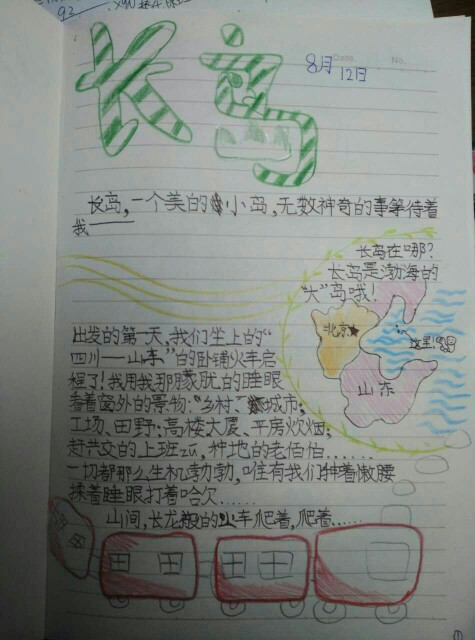 92.
长岛
Date.
No.
8月12日
长岛,一个美的小岛,无数神奇的事等待着
我——
长岛在哪?
长岛是渤海的
“大”岛哦!
北京★
这里
山东
出发的第一天,我们坐上的“
四川——山东”的卧铺火车启
程了!我用我那朦胧的睡眼
看着窗外的景物:“乡村”城市;
工场、田野;高楼大厦、平房炊烟;
赶公交的上班zú,种地的老伯伯……
一切都那么生机勃勃,唯有我们伸着懒腰
揉着睡眼打着哈欠……
山间,长龙般的火车爬着,爬着……